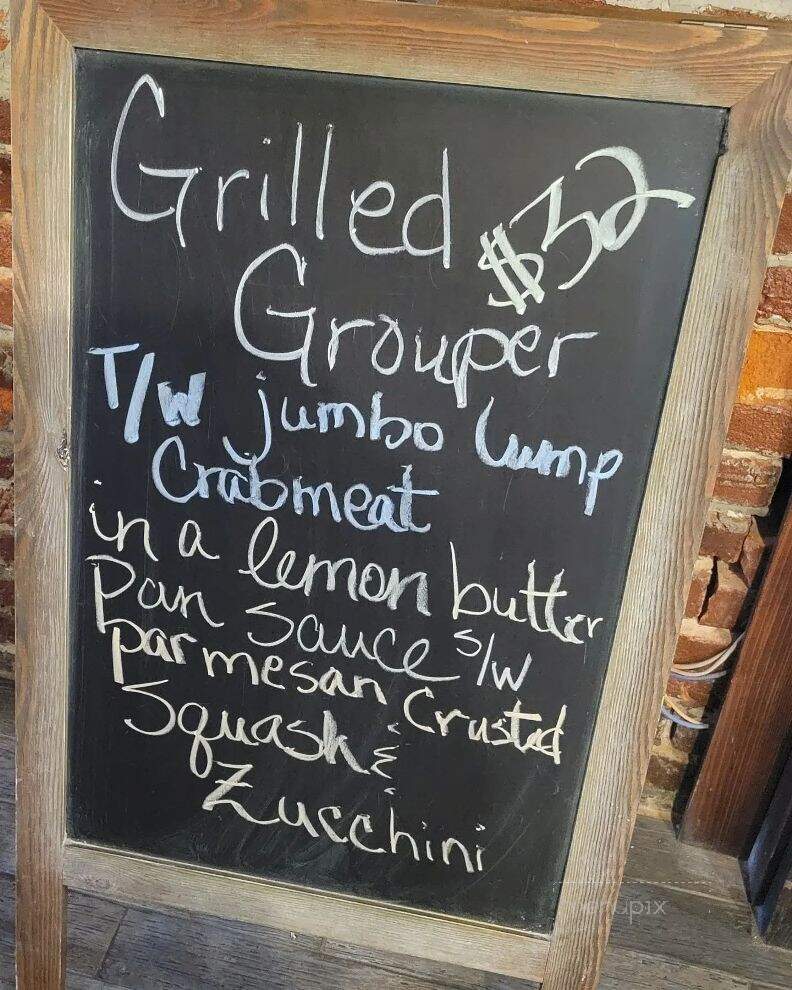 Grilled $32
Grouper
T/W jumbo lump
Crabmeat
in a lemon butter
Pan sauce s/w
parmesan Crusted
Squash &
Zucchini
menupix